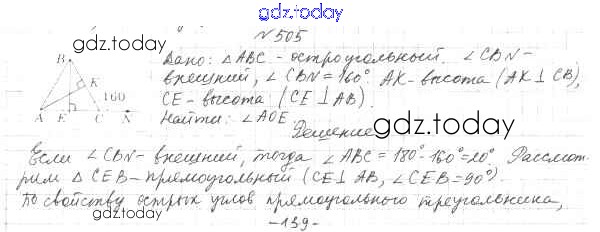 gdz.today
№505
gdz.today
Дано: ∠ABC - остроугольный. ∠CBN-
внешний, ∠CBN=160° AK-высота (AK⊥CB),
CE-высота (CE⊥AB).
Найти: ∠AOE.
B
K
160
A E C N
Решение
gdz.today
Если ∠CBN-внешний, тогда ∠ABC=180°-160°=20°. Рассмот-
рим △CEB-прямоугольный (CE⊥AB, ∠CEB=90°).
По свойству острых углов прямоугольного треугольника,
gdz.today
-139-